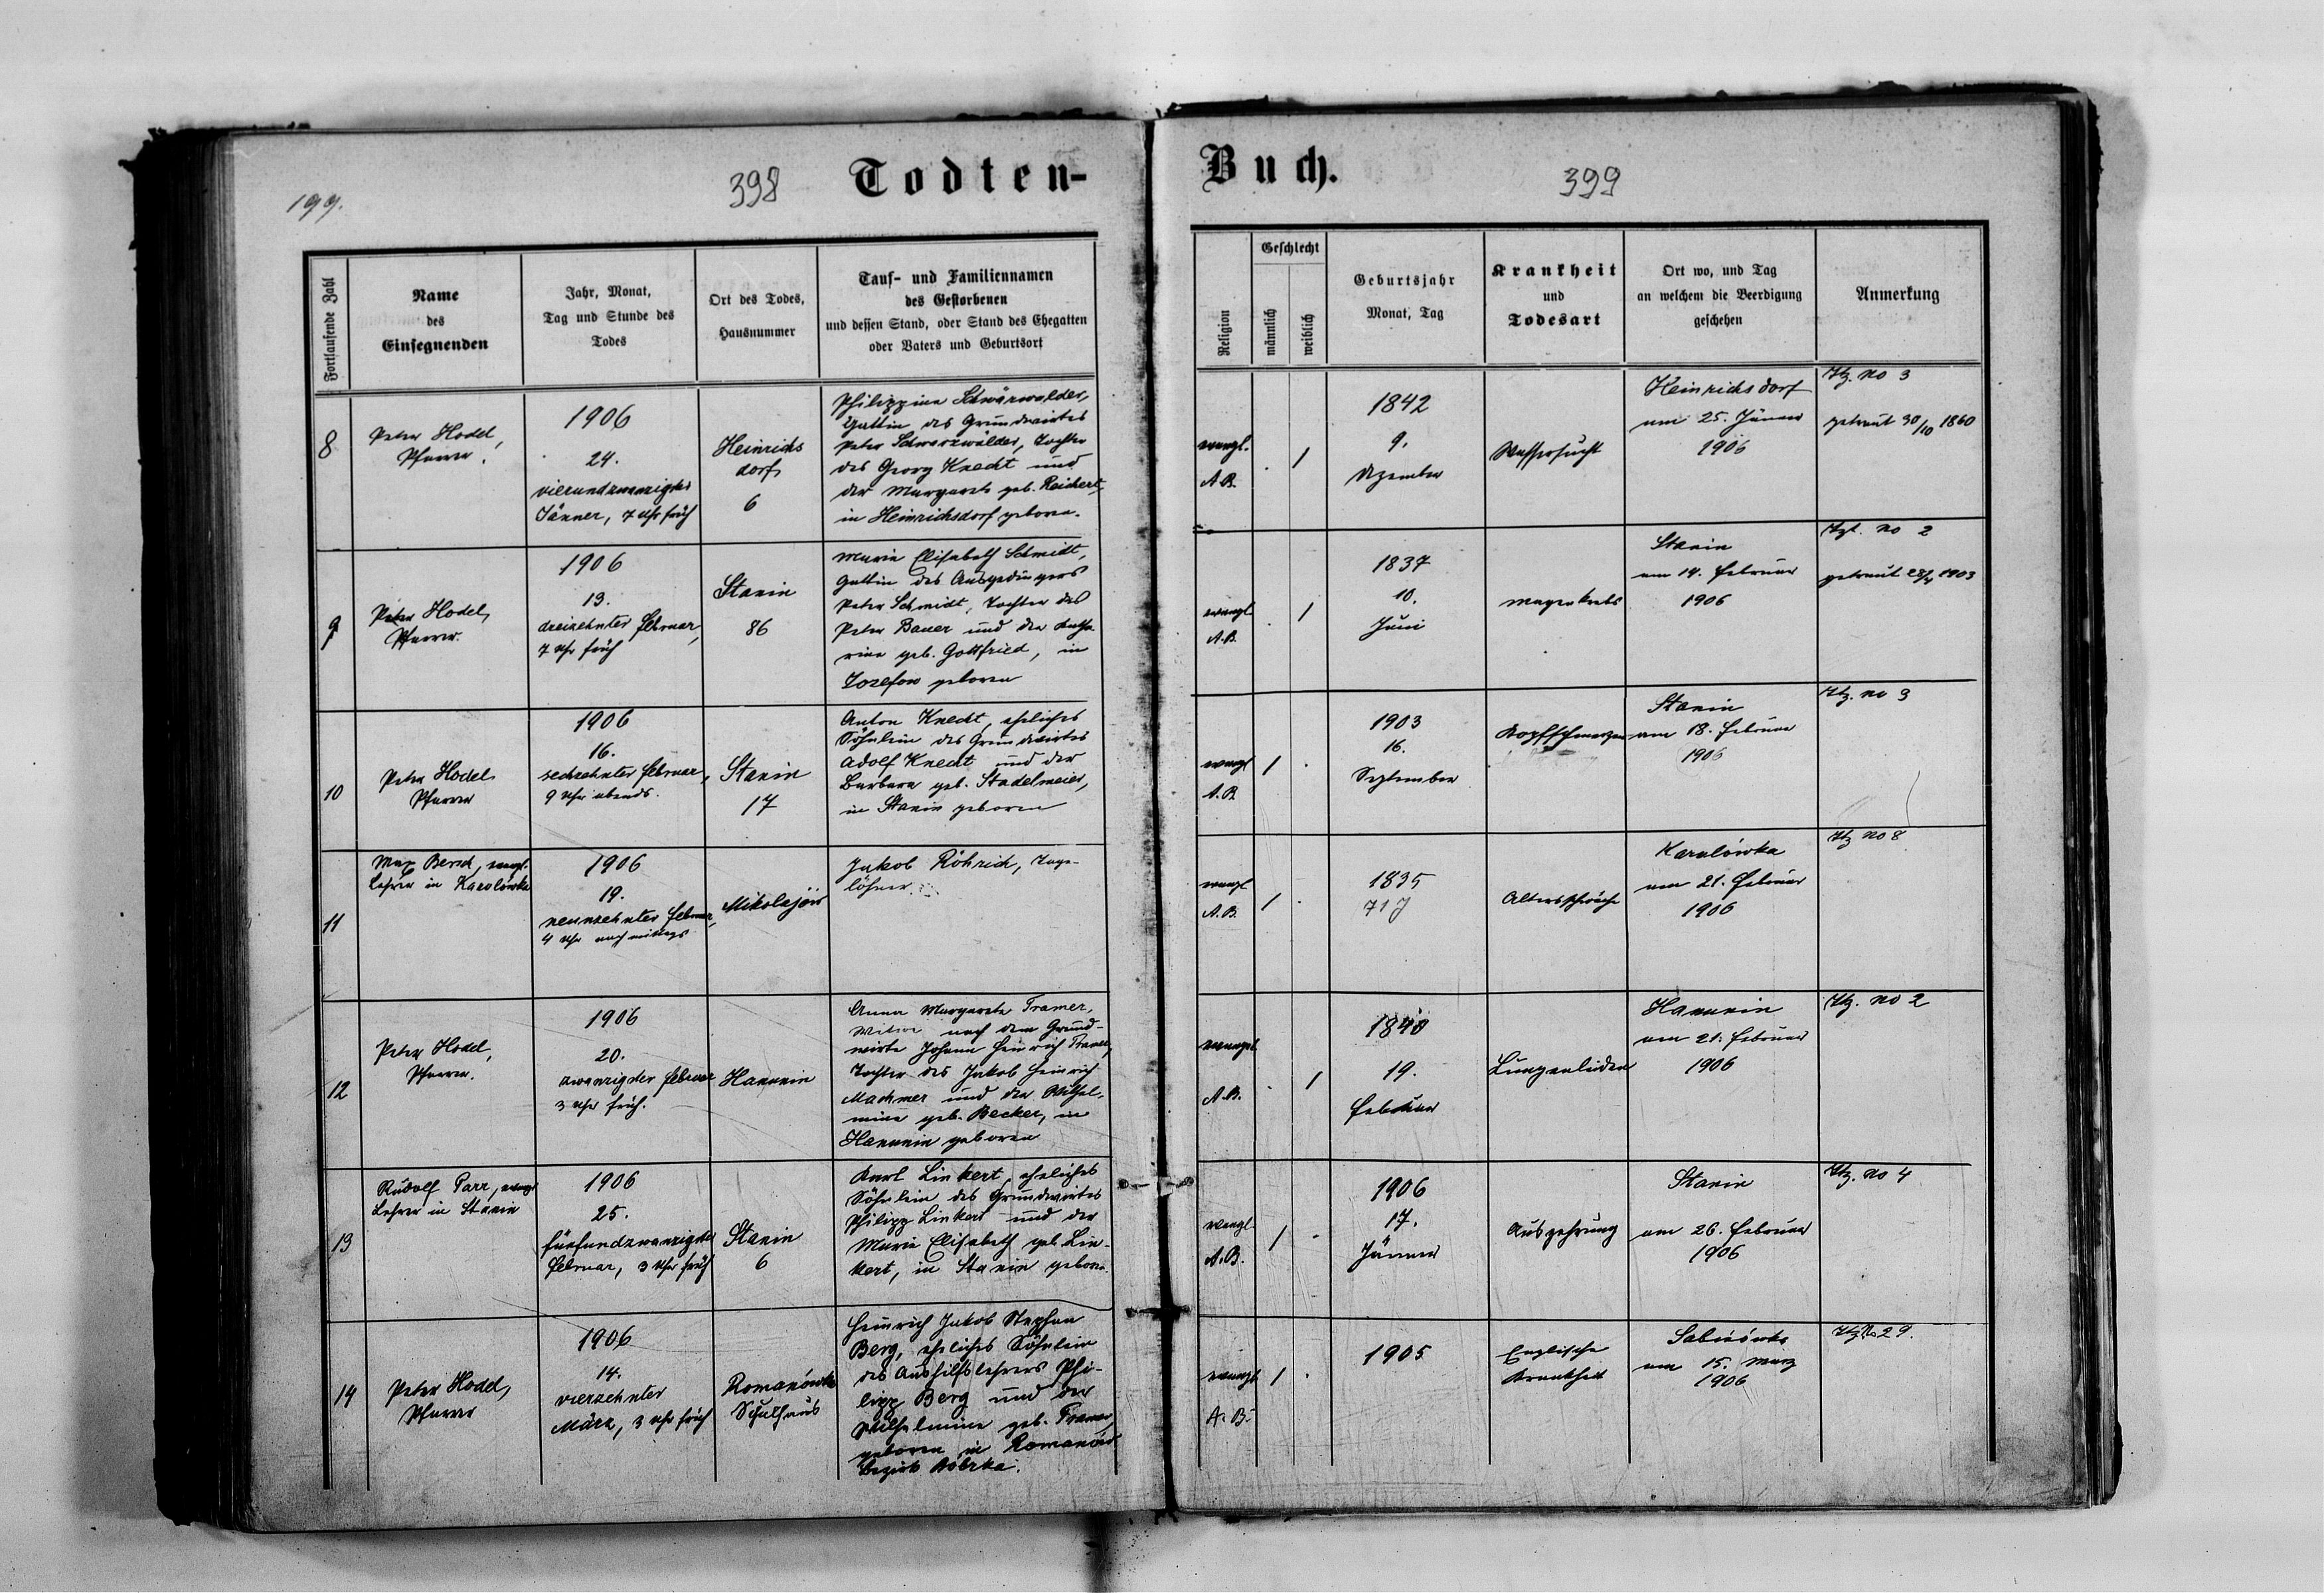 199.
398
Todten-
Fortlaufende Zahl
Name
des
Einsegnenden
Jahr, Monat,
Tag und Stunde des
Todes
Ort des Todes,
Hausnummer
Tauf- und Familiennamen
des Gestorbenen
und dessen Stand, oder Stand des Ehegatten
oder Vaters und Geburtsort
8
Peter Hodel,
Pfarrer.
1906
24.
vierundzwanzigster
Jänner, 7 Uhr früh
Heinrichs
dorf
6
Philippine Schwarzwalder,
Gattin des Grundwirtes
Peter Schwarzwälder, Tochter
des Georg Knecht und
der Margarete geb. Reichert,
in Heinrichsdorf geboren.
9
Peter Hodel,
Pfarrer.
1906
13.
dreizehnter Februar,
7 Uhr früh
Stanin
86
Maria Elisabeth Schmidt,
Gattin des Ausgedingers
Peter Schmidt, Tochter des
Peter Bauer und der Katha-
rina geb. Gottfried, in
Josefow geboren
10
Peter Hodel
Pfarrer
1906
16.
sechzehnter Februar,
9 Uhr abends.
Stanin
17
Anton Knecht, eheliches
Söhnlein des Grundwirtes
Adolf Knecht und der
Barbara geb. Stadelmeier,
in Stanin geboren
11
Max Bersch, evangl.
Lehrer in Karolówka
1906
19.
neunzehnter Februar,
4 Uhr nachmittags
Mikolajów
Jakob Röhrich, Tage-
löhner.
12
Peter Hodel,
Pfarrer.
1906
20.
zwanzigster Februar
3 Uhr früh.
Hanunin
Anna Margareta Tramer,
Witwe nach dem Grund-
wirte Johann Heinrich Tramer,
Tochter des Jakob Heinrich
Machmer und der Wilhel-
mine geb. Becker, in
Hanunin geboren
13
Rudolf Parr, evangl
Lehrer in Stanin
1906
25.
fünfundzwanzigster
Februar, 3 Uhr früh
Stanin
6
Karl Linkert, eheliches
Söhnlein des Grundwirtes
Philipp Linkert und der
Maria Elisabeth geb. Lin-
kert, in Stanin geboren.
14
Peter Hodel,
Pfarrer
1906
14.
vierzehnter
März, 3 Uhr früh
Romanówka
Schulhaus
Heinrich Jakob Stephan
Berg, eheliches Söhnlein
des Aushilfslehrers Phi-
lipp Berg und der
Wilhelmine geb. Tramer,
geboren in Romanów
Bezirk Bóbrka.
Buch.
399
Religion
Geschlecht
männlich
weiblich
Geburtsjahr
Monat, Tag
Krankheit
und
Todesart
Ort wo, und Tag
an welchem die Beerdigung
geschehen
Anmerkung
evangl.
A.B.
.
1
1842
9.
Dezember
Wassersucht
Heinrichsdorf
am 25. Jänner
1906
no 3
getraut 30/10 1860
evangl
A.B.
.
1
1837
10.
Juni
Magenkrebs
Stanin
am 14. Februar
1906
no 2
getraut 1903
evangl
A.B.
1
.
1903
16.
September
Kopfschmerzen
Stanin
am 18. Februar
1906
no 3
evangl
A.B.
1
.
1835
71 J
Altersschwäche
Karolówka
am 21. Februar
1906
no 8
evangel
A.B.
.
1
1840
19.
Februar
Lungenleiden
Hanunin
am 21. Februar
1906
no 2
evangl
A.B.
1
.
1906
17.
Jänner
Auszehrung
Stanin
am 26. Februar
1906
no 4
evangl
A.B.
1
.
1905
Englische
Krankheit
am 15. März
1906
No 29.